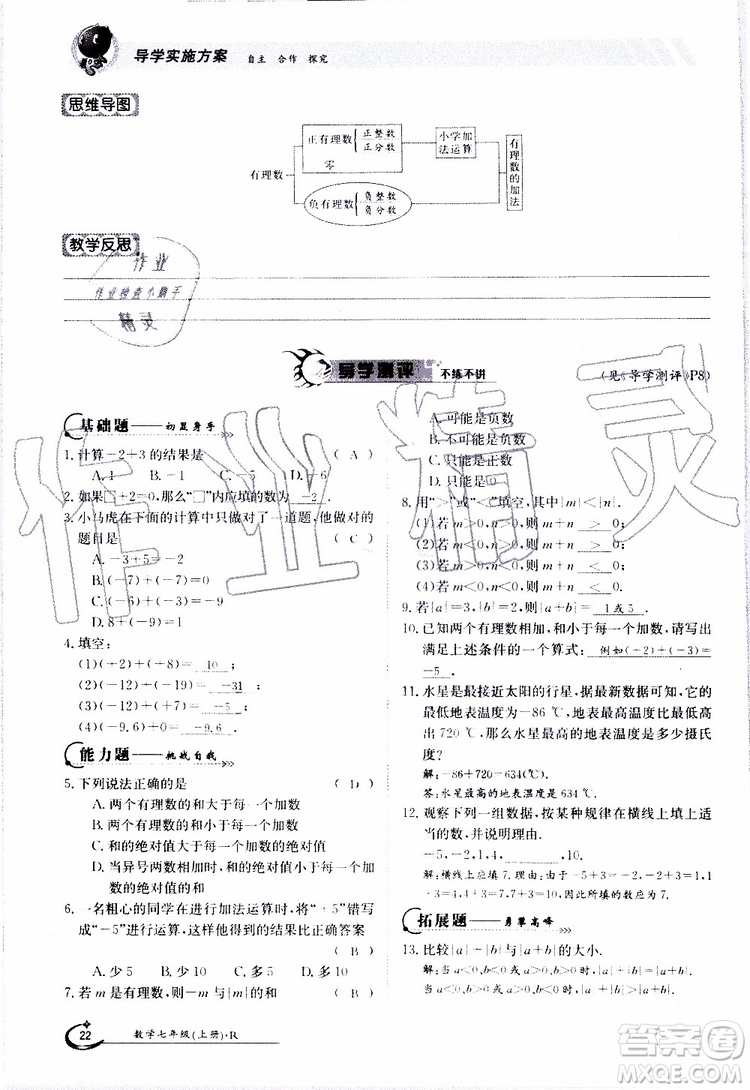 导学实施方案 自主 合作 探究
思维导图
有理数
正有理数 正整数 正分数
零
负有理数 负整数 负分数
小学加法运算
有理数的加法
教学反思
作业
作业检查小助手
精灵
导学测评 不练不讲 (见《导学测评》P8)
基础题——初显身手
1. 计算-2+3的结果是 ( A )
A. 1 B. -1 C. -5 D. -6
2. 如果□+2=0,那么“□”内应填的数为 -2 .
3. 小马虎在下面的计算中只做对了一道题,他做对的
题目是 ( C )
A. -3+5=-2
B. (-2)+(-2)=0
C. (-6)+(+4)=-2
D. 8+(-9)=0
4. 填空:
(1)(+2)+(+8)= 10 ;
(2)(-12)+(-19)= -31 ;
(3)(-14)+(+9)= -5 ;
(4)(-9.6)+0= -9.6 .
能力题——挑战自我
5. 下列说法正确的是 ( D )
A. 两个有理数的和大于每一个加数
B. 两个有理数的和小于每一个加数
C. 和的绝对值大于每一个加数的绝对值
D. 当异号两数相加时,和的绝对值小于两数的
绝对值的和
6. 一名粗心的同学在进行加法运算时,将“+5”错写
成“-5”进行运算,这样他得到的结果比正确答案
( B )
A. 少5 B. 少10 C. 多5 D. 多10
7. 若m是有理数,则-m与|m|的和 ( B )
A. 可能是负数
B. 不可能是负数
C. 只能是正数
D. 只能是0
8. 用“>”或“<”填空,其中|m|>|n|.
(1)若m>0,n>0,则m+n > 0;
(2)若m<0,n<0,则m+n < 0;
(3)若m>0,n<0,则m+n > 0;
(4)若m<0,n>0,则m+n < 0.
9. 若|a|=3,|b|=2,则|a+b|= 1或5 .
10. 已知两个有理数相加,和小于每一个加数,请写出
满足上述条件的一个算式: 例如(-2)+(-3)=
-5 .
11. 水星是最接近太阳的行星,据最新数据可知,它的
最低地表温度为-86 ℃,地表最高温度比最低高
出720 ℃,那么水星最高地表温度是多少摄氏
度?
解:-86+720=634(℃)
答:水星最高的地表温度为634℃.
12. 观察下列一组数据,按某种规律在横线上填上适
当的数,并说明理由.
-5,-2,1,4, ,10.
解:横线上应填7.因为-5+3=-2,-2+3=1,1
+3=4,4+3=7,7+3=10,所以应填的数为7.
拓展题——勇攀高峰
13. 比较|a|+|b|与|a+b|的大小.
22 数学七年级(上册)·R
作业精灵